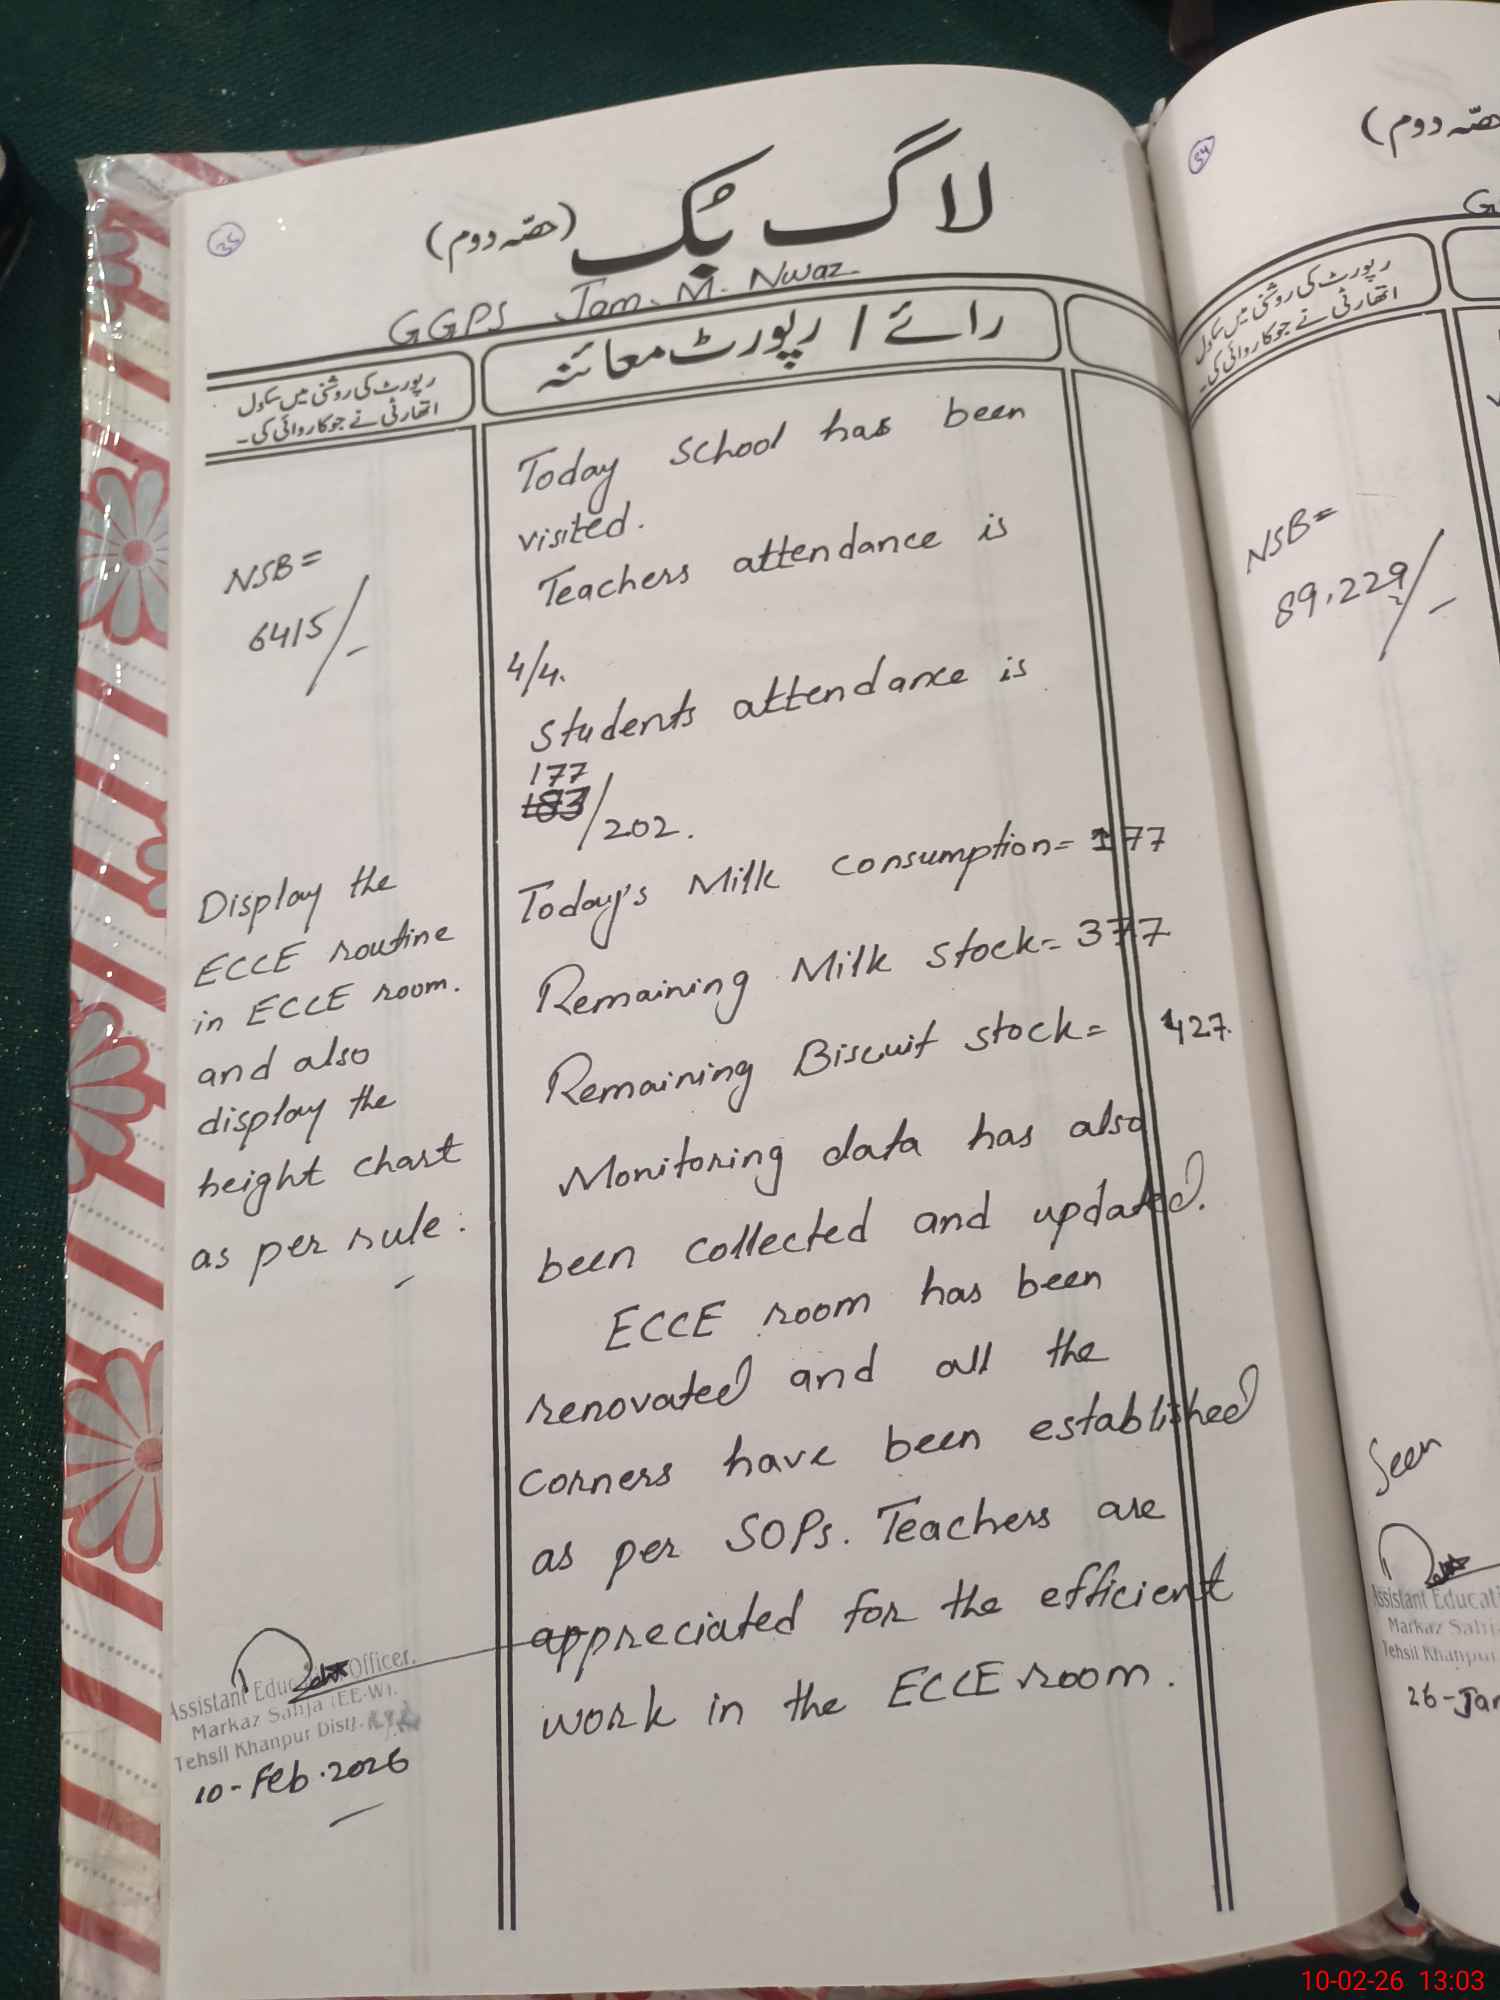 لاگ بُک (حصّہ دوم)
GGPS Jam. M. Nwaz
رائے / رپورٹ معائنہ
رپورٹ کی روشنی میں سکول
اتھارٹی نے جو کارروائی کی۔
Today School has been
visited.
Teachers attendance is
4/4.
Students attendance is
177
183/202.
Today's Milk consumption= 177
Remaining Milk stock= 377
Remaining Biscuit stock= 427.
Monitoring data has also
been collected and updated.
ECCE room has been
renovated and all the
corners have been established
as per SOPs. Teachers are
appreciated for the efficient
work in the ECCE room.
NSB=
6415/-
Display the
ECCE routine
in ECCE room.
and also
display the
height chart
as per rule.
Assistant Education Officer.
Markaz Sahja (EE-W).
Tehsil Khanpur Distt.
10-Feb.2026
حصّہ دوم)
رپورٹ کی روشنی میں سکول
اتھارٹی نے جو کارروائی کی۔
NSB=
89,229/-
Seen
Assistant Educati
Markaz Sahj
Tehsil Khanpur
26-Jan
10-02-26 13:03